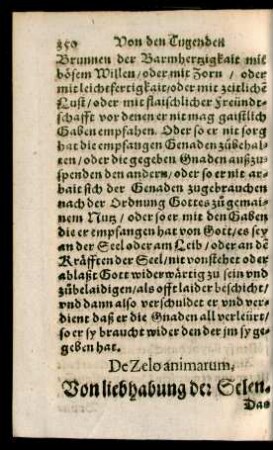 350 Von den Tugenden
Brunnen der Barmhertzigkait mit
bösem Willen / oder mit Zorn / oder
mit leichtfertigkait / oder mit zeitlichē
Lust / oder mit flaischlicher Freündt-
schafft vor denen er nit mag gaistlich
Gaben empfahen. Oder so er nit sorg
hat die empfangen Genaden zübehal-
ten / oder die gegeben Gnaden außzu-
spenden den andern / oder so er nit ar-
bait sich der Genaden zugebrauchen
nach der Ordnung Gottes zů gemai-
nem Nutz / oder so er mit den Gaben
die er empfangen hat von Gott / es sey
an der Seel oder am Leib / oder an dē
Kräfften der Seel / nit vonstehet oder
ablaßt Gott widerwärtig zu sein vnd
zübelaidigen / als offt laider beschicht /
vnd dann also verschuldet er vnd ver-
dient daß er die Gnaden all verleürt /
so er sy braucht wider den der jm sy ge-
geben hat.
De Zelo animarum,
Von liebhabung der Selen.
Das